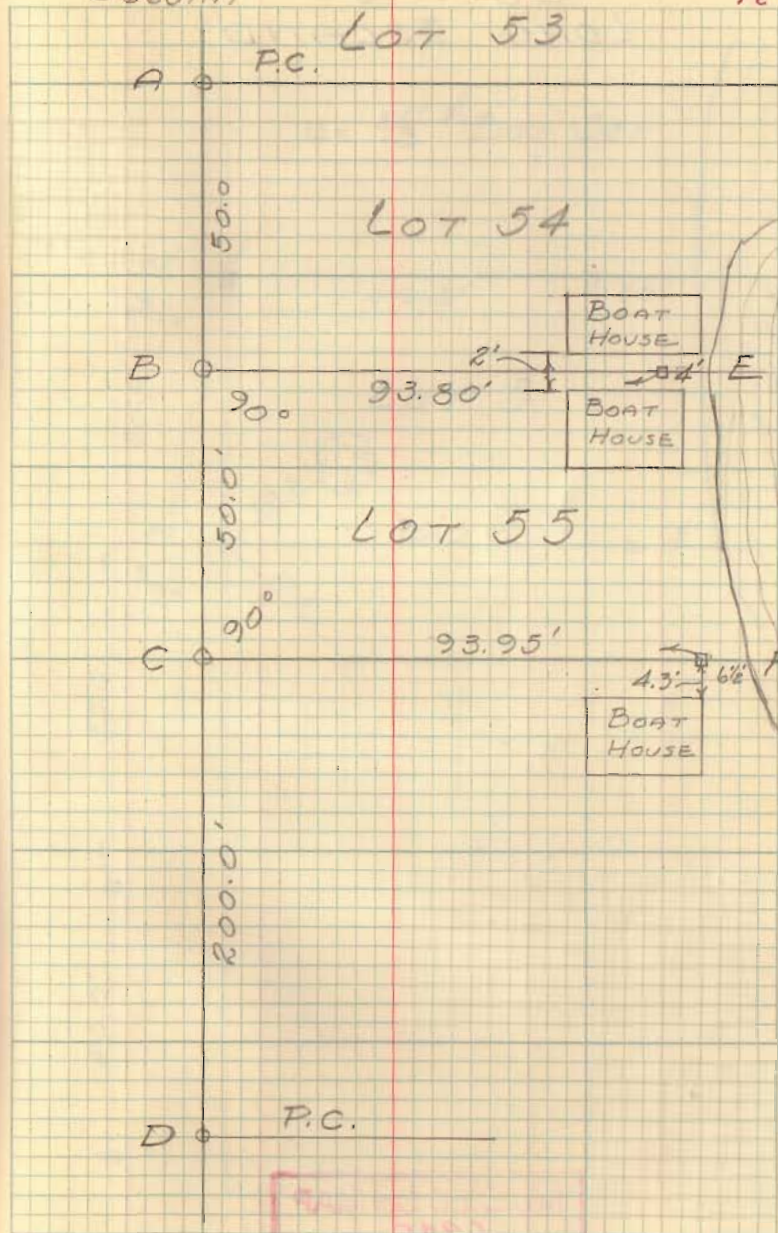 LOT 53
P.C.
A
50.0
LOT 54
BOAT
HOUSE
B
2'
4'
E
90°
93.80'
BOAT
HOUSE
50.0'
LOT 55
90°
C
93.95'
4.3'
6½'
BOAT
HOUSE
200.0'
D
P.C.